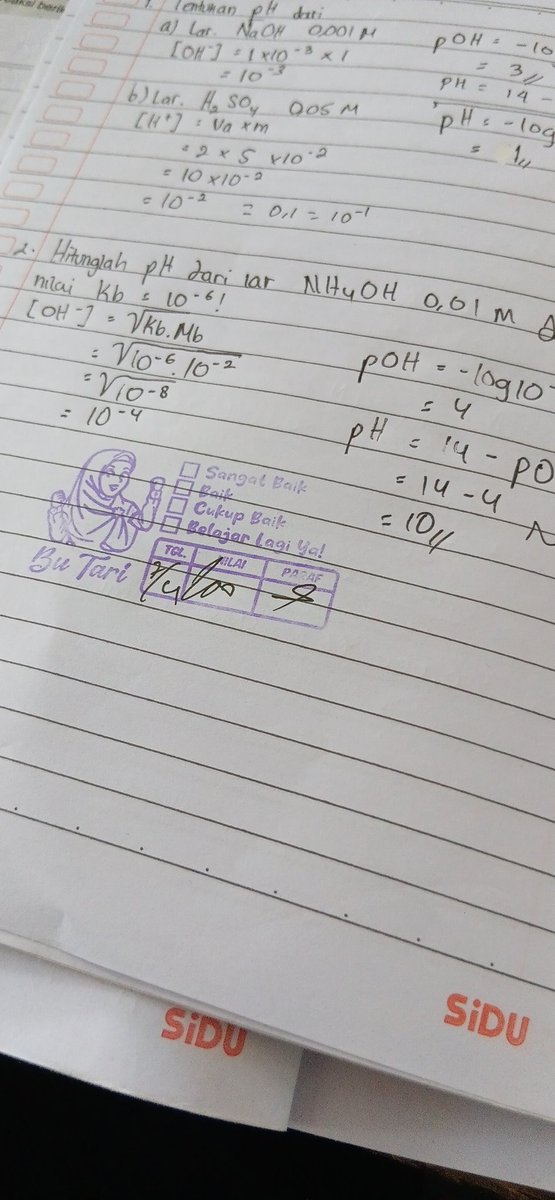 1. Tentukan pH dari
a) Lar. NaOH 0,001 M
[OH-] = 1 x 10-3 x 1
= 10-3
pOH = -10
= 3 //
pH = 14 -
b) Lar. H2SO4 0,05 M
[H+] = Va x m
= 2 x 5 x 10-2
= 10 x 10-2
= 10-2 = 0,1 = 10-1
pH = -log
= 1 //
2. Hitunglah pH dari lar NH4OH 0,01 M
nilai Kb = 10-6!
[OH-] = √Kb.Mb
= √10-6.10-2
= √10-8
= 10-4
pOH = -log10
= 4
pH = 14 - PO
= 14 - 4
= 10 //
Sangat Baik
Baik
Cukup Baik
Belajar Lagi Ya!
Bu Tari
TGL. NILAI PARAF
100
SiDU
SiDU